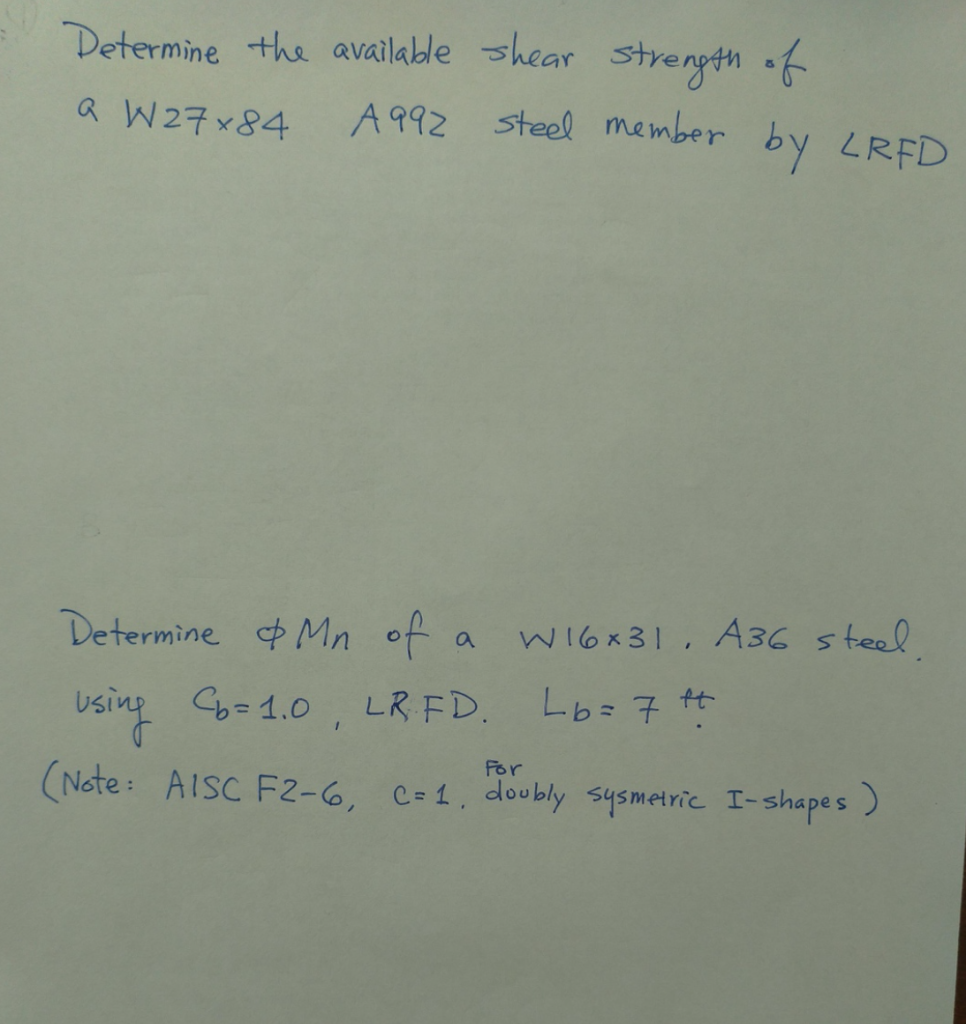 Determine the available shear strength of
a W27x84 A992 steel member by LRFD
Determine ϕMn of a W16x31, A36 steel.
using Cb=1.0, LRFD. Lb=7 ft.
(Note: AISC F2-6, C=1, For doubly sysmetric I-shapes)